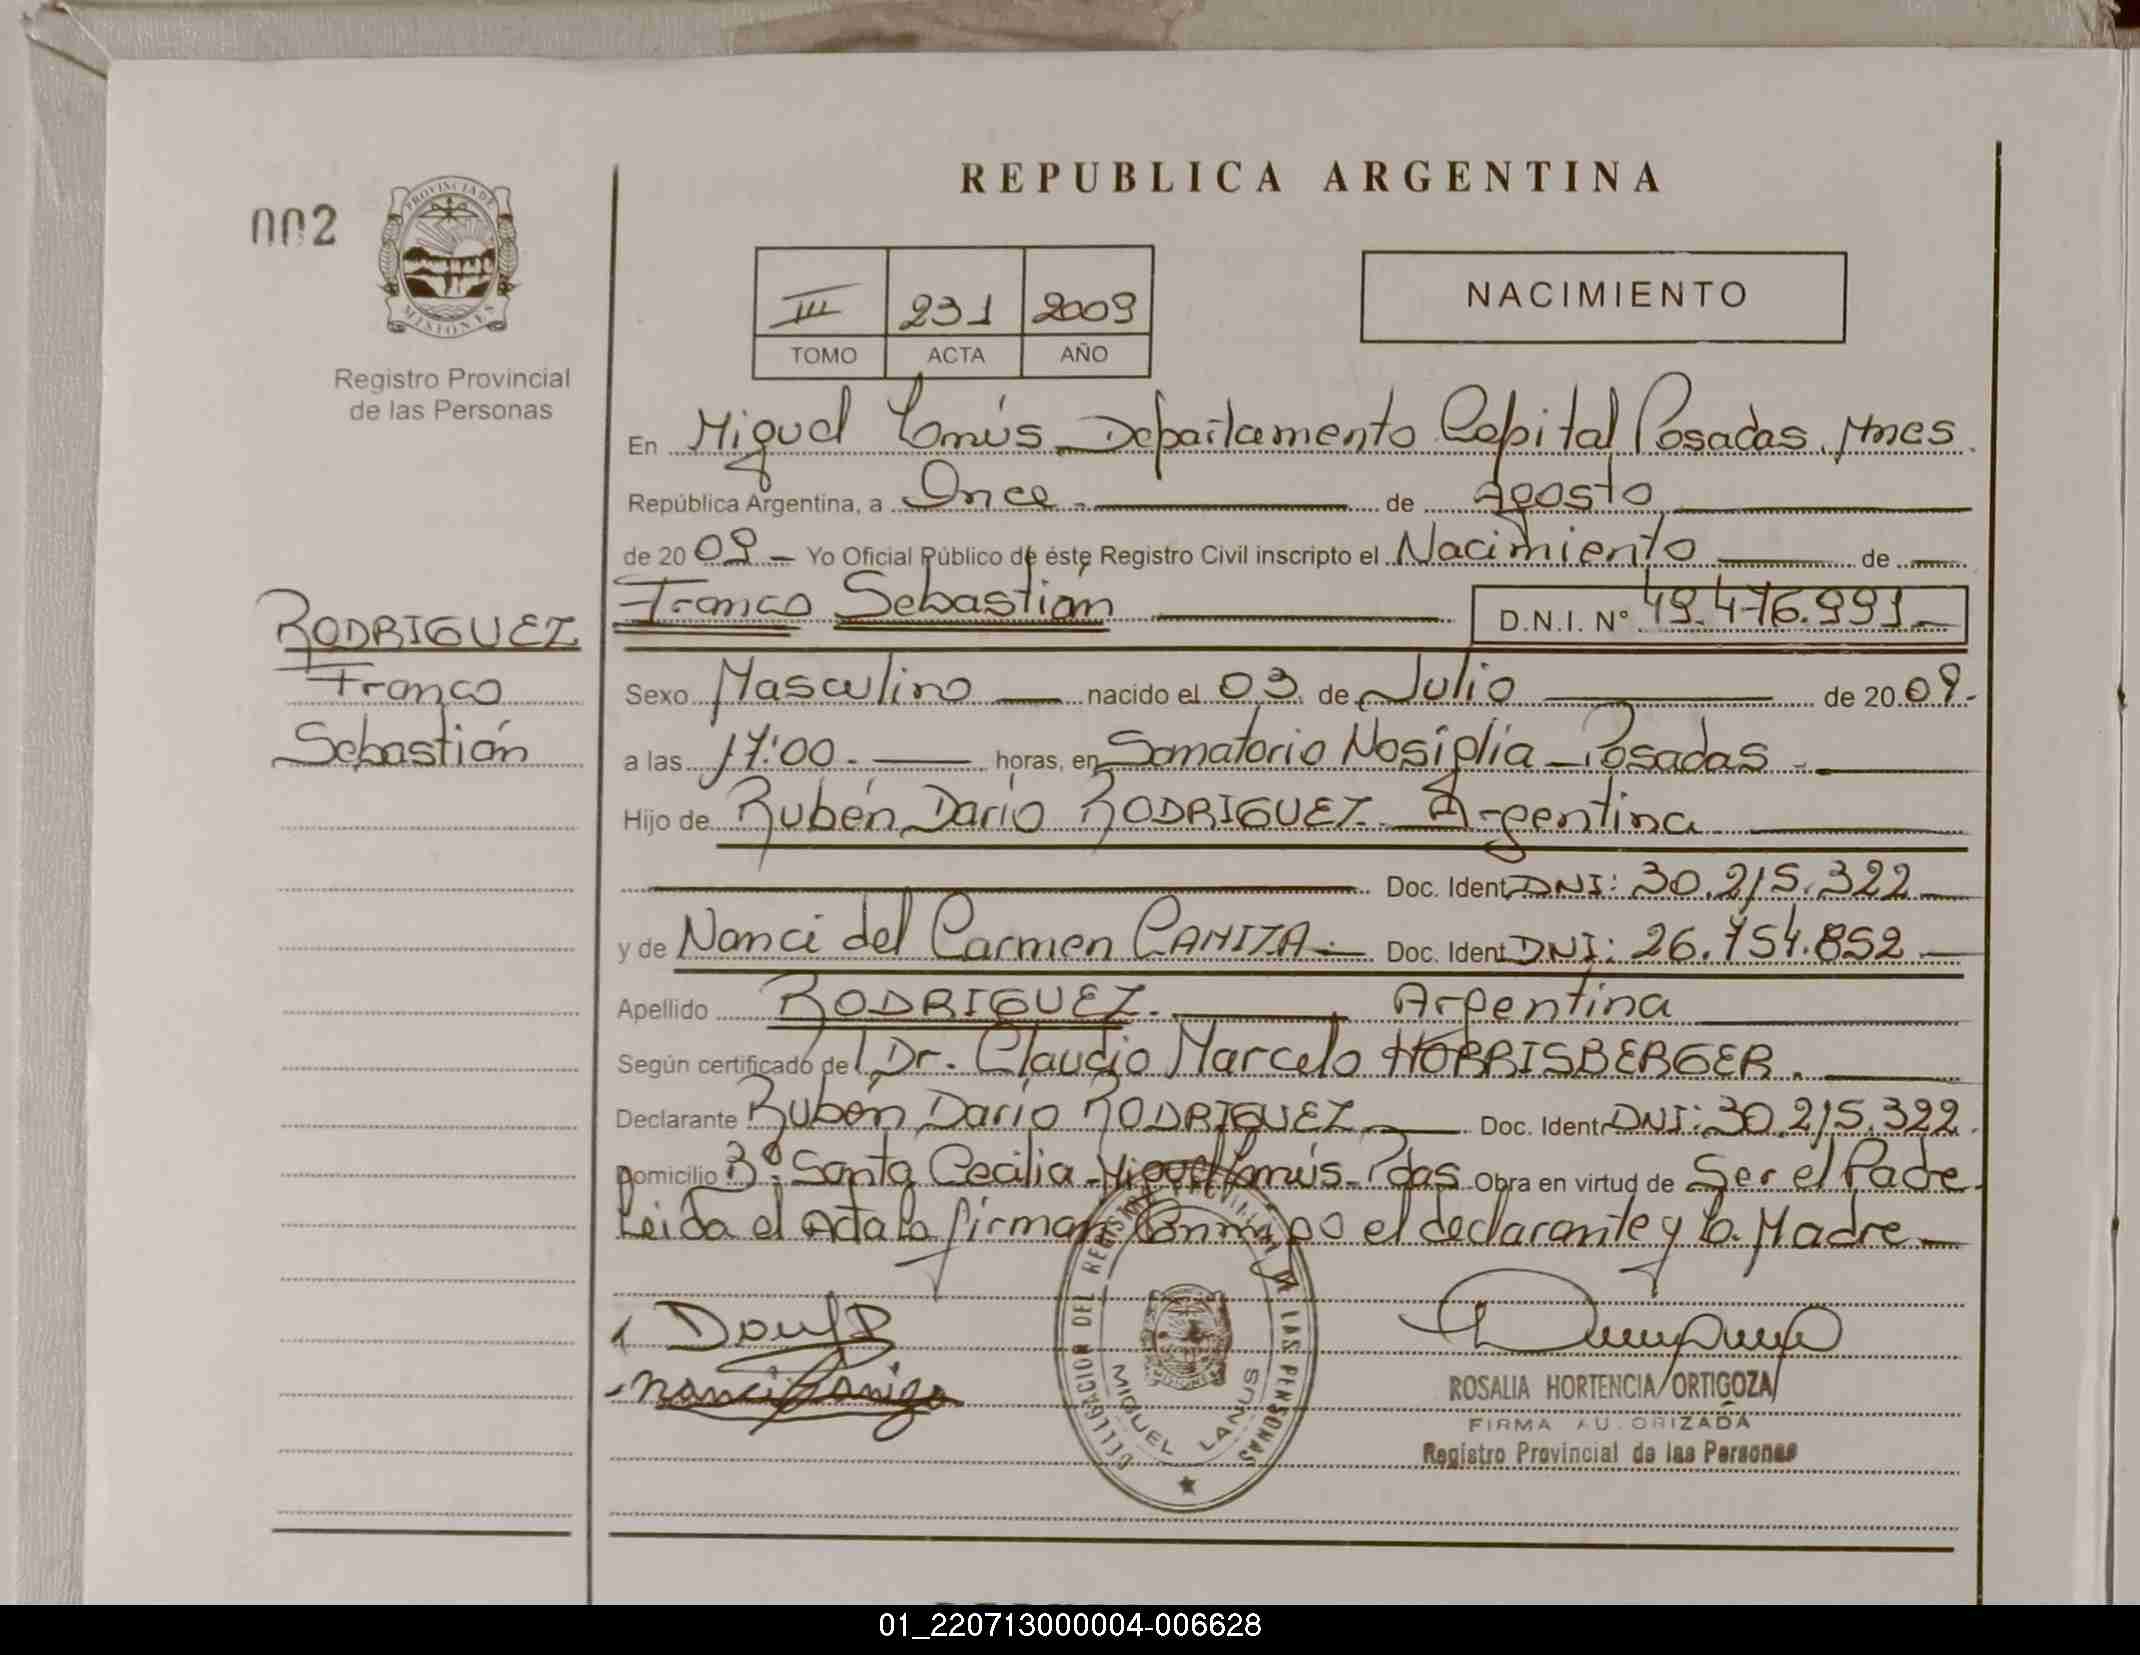 REPUBLICA ARGENTINA
002
PROVINCIA DE
MISIONES
Registro Provincial
de las Personas
III 231 2009
TOMO ACTA AÑO
NACIMIENTO
En Miguel Lanús Departamento Capital Posadas, Mnes.
República Argentina, a Once de Agosto
de 2009 Yo Oficial Público de éste Registro Civil inscripto el Nacimiento de
Franco Sebastián D.N.I. Nº 49.476.991
RODRIGUEZ
Franco
Sebastián
Sexo Masculino nacido el 03 de Julio de 2009.
a las 17:00 horas, en Samatorio Nosiglia Posadas
Hijo de Rubén Darío RODRIGUEZ Argentina
Doc. Ident. DNI: 30.215.322
y de Nanci del Carmen CANIZA Doc. Ident DNI: 26.754.852
Apellido RODRIGUEZ. Argentina
Según certificado de Dr. Claudio Marcelo HORRISBERGER.
Declarante Rubén Darío RODRIGUEZ Doc. Ident DNI: 30.215.322.
Domicilio Bº Santa Cecilia Miguel Lanús-Pdas Obra en virtud de Ser el Padre
Leida el Acta la firman Conmigo el declarante y la Madre
Nanci Caniza
DELEGACION DEL REGISTRO PROVINCIAL DE LAS PERSONAS
MISIONES
MIGUEL LANUS
ROSALIA HORTENCIA ORTIGOZA
FIRMA AUTORIZADA
Registro Provincial de las Personas
01_220713000004-006628